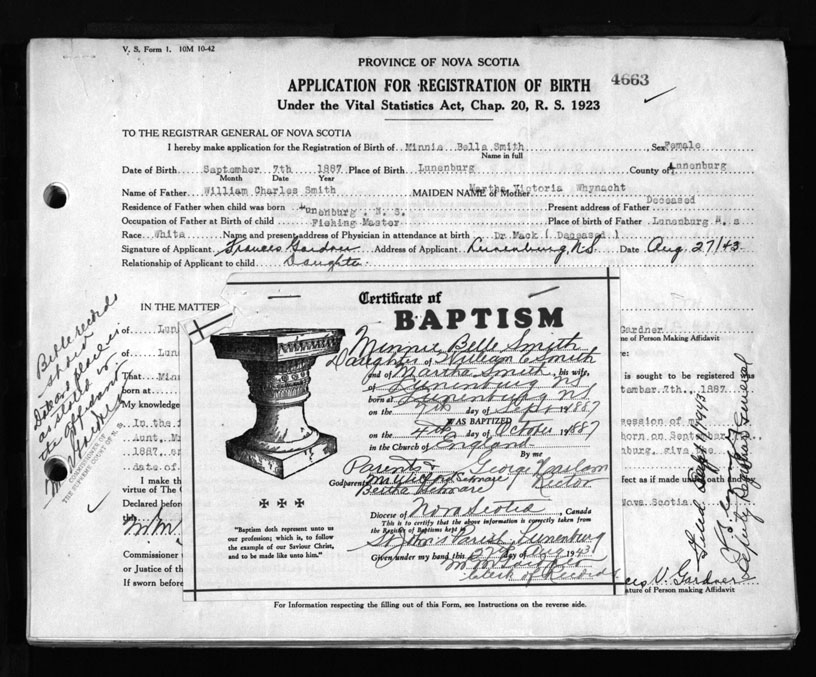 V. S. Form 1. 10M 10-42
PROVINCE OF NOVA SCOTIA
APPLICATION FOR REGISTRATION OF BIRTH 4663
Under the Vital Statistics Act, Chap. 20, R. S. 1923
TO THE REGISTRAR GENERAL OF NOVA SCOTIA
I hereby make application for the Registration of Birth of Minnie Bella Smith Sex Female
Name in full
Date of Birth September 7th 1887 Place of Birth Lunenburg County of Lunenburg
Month Date Year
Name of Father William Charles Smith MAIDEN NAME of Mother Martha Victoria Whynacht
Residence of Father when child was born Lunenburg, N. S. Present address of Father Deceased
Occupation of Father at Birth of child Fishing Master Place of birth of Father Lunenburg N. s
Race White Name and present address of Physician in attendance at birth Dr Mack ( Deceased )
Signature of Applicant Frances Gardner Address of Applicant Lunenburg, N.S. Date Aug 27/43
Relationship of Applicant to child Daughter
IN THE MATTER
of Lun
of Lun
That Min
born at
My knowledge
In the f
Aunt, M
1887, a
date of
I make th
virtue of The C
Declared before
the
Commissioner
or Justice of th
If sworn before
Bible records
Date and place as
the affidavit
COMMISSIONER OF
THE SUPREME COURT OF N. S.
Certificate of
BAPTISM
Minnie Belle Smith
Daughter of William C Smith
and of Martha Smith, his wife,
of Lunenburg NS
born at Lunenburg NS
on the 7th day of Sept 1887
WAS BAPTIZED
on the 4th day of October 1887
in the Church of England
By me
Parents & George Haslam
Godparents Rector
Bertha
Diocese of Nova Scotia, Canada
This is to certify that the above information is correctly taken
from the Register of Baptisms kept by
St John's Parish Lunenburg
Given under my hand this 27th day of Aug 1943
Clerk of Records
"Baptism doth represent unto us
our profession; which is, to follow
the example of our Saviour Christ,
and to be made like unto him."
Gardner
me of Person Making Affidavit
re:
is sought to be registered was
tember 7th., 1887
ession of
born on Sept
nburg, give
fect as if made under oath and
Nova Scotia.
Deputy Registrar General
ces V. Gardner
ature of Person making Affidavit
For Information respecting the filling out of this Form, see Instructions on the reverse side.